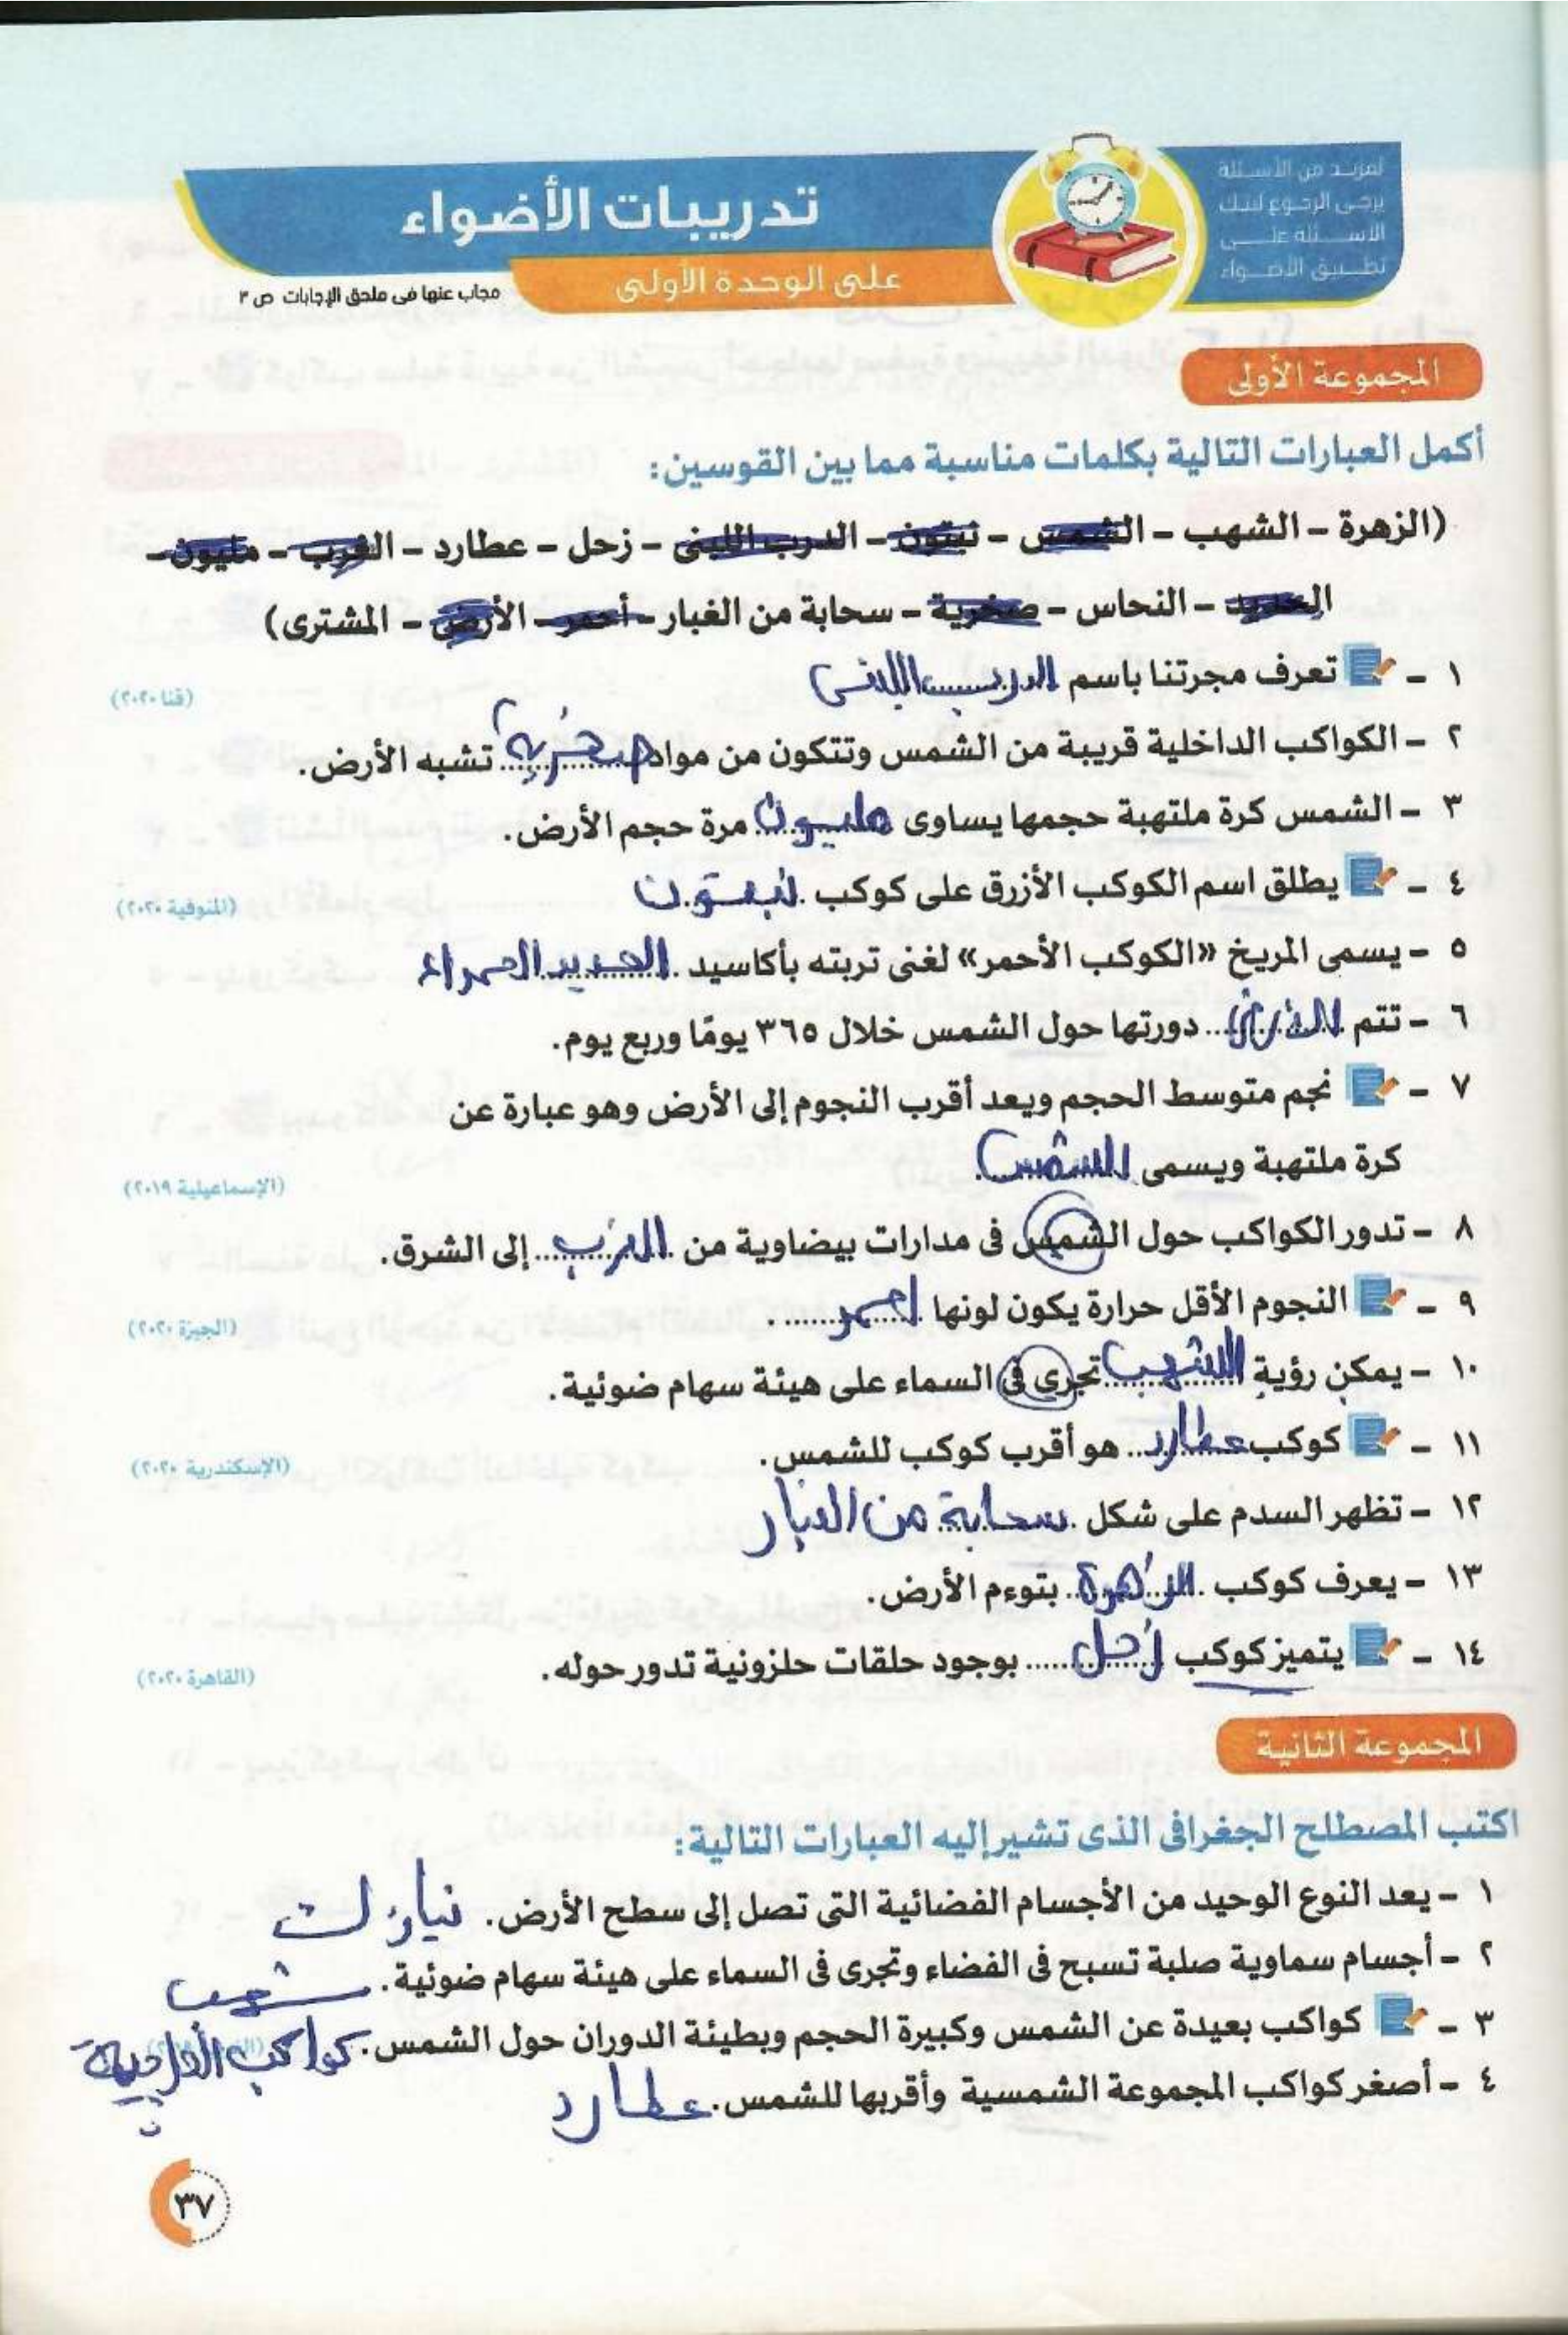 لمزيد من الأسئلة
يرجى الرجوع لبنك
الأسئلة على
تطبيق الأضواء
تدريبات الأضواء
على الوحدة الأولى
مجاب عنها فى ملحق الإجابات ص ٣
المجموعة الأولى
أكمل العبارات التالية بكلمات مناسبة مما بين القوسين:
(الزهرة - الشهب - الشمس - نبتون - الدرب اللبنى - زحل - عطارد - الغرب - مليون -
الحديد - النحاس - صخرية - سحابة من الغبار - أحمر - الأرض - المشترى)
١ - تعرف مجرتنا باسم الدرب اللبنى (قنا ٢٠٢٠)
٢ - الكواكب الداخلية قريبة من الشمس وتتكون من مواد صخرية تشبه الأرض.
٣ - الشمس كرة ملتهبة حجمها يساوى مليون مرة حجم الأرض.
٤ - يطلق اسم الكوكب الأزرق على كوكب نبتون (المنوفية ٢٠٢٠)
٥ - يسمى المريخ «الكوكب الأحمر» لغنى تربته بأكاسيد الحديد الحمراء
٦ - تتم الأرض دورتها حول الشمس خلال ٣٦٥ يومًا وربع يوم.
٧ - نجم متوسط الحجم ويعد أقرب النجوم إلى الأرض وهو عبارة عن
كرة ملتهبة ويسمى الشمس. (الإسماعيلية ٢٠١٩)
٨ - تدور الكواكب حول الشمس فى مدارات بيضاوية من الغرب إلى الشرق.
٩ - النجوم الأقل حرارة يكون لونها احمر. (الجيزة ٢٠٢٠)
١٠ - يمكن رؤية الشهب تجرى فى السماء على هيئة سهام ضوئية.
١١ - كوكب عطارد هو أقرب كوكب للشمس. (الإسكندرية ٢٠٢٠)
١٢ - تظهر السدم على شكل سحابة من الغبار
١٣ - يعرف كوكب الزهرة بتوءم الأرض.
١٤ - يتميز كوكب زحل بوجود حلقات حلزونية تدور حوله. (القاهرة ٢٠٢٠)
المجموعة الثانية
اكتب المصطلح الجغرافى الذى تشير إليه العبارات التالية:
١ - يعد النوع الوحيد من الأجسام الفضائية التى تصل إلى سطح الأرض. نيازك
٢ - أجسام سماوية صلبة تسبح فى الفضاء وتجرى فى السماء على هيئة سهام ضوئية. شهب
٣ - كواكب بعيدة عن الشمس وكبيرة الحجم وبطيئة الدوران حول الشمس. كواكب الخارجية
٤ - أصغر كواكب المجموعة الشمسية وأقربها للشمس. عطارد
٣٧